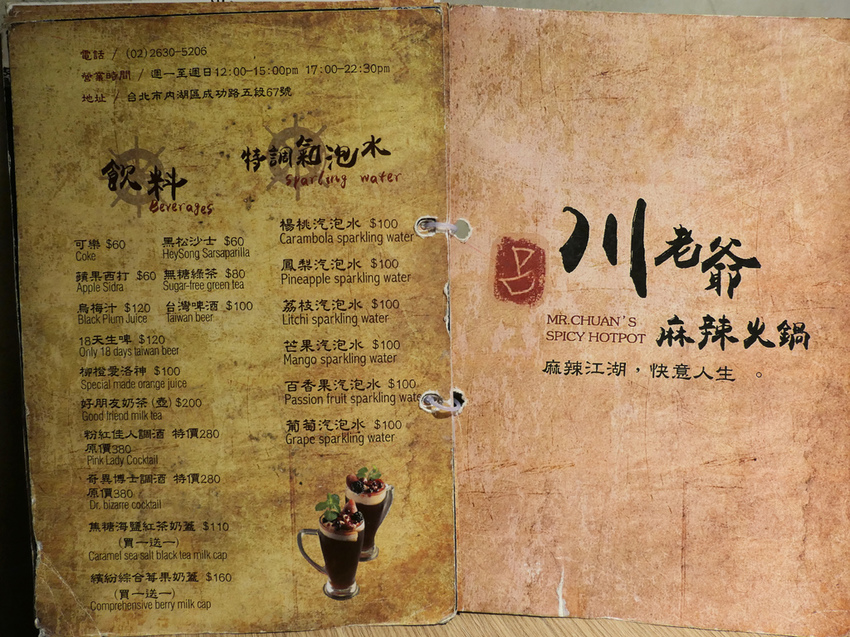 電話 / (02)2630-5206
營業時間 / 週一至週日12:00-15:00pm 17:00-22:30pm
地址 / 台北市內湖區成功路五段67號
飲料
Beverages
可樂 $60
Coke
黑松沙士 $60
HeySong Sarsaparilla
蘋果西打 $60
Apple Sidra
無糖綠茶 $80
Sugar-free green tea
烏梅汁 $120
Black Plum Juice
台灣啤酒 $100
Taiwan beer
18天生啤 $120
Only 18 days taiwan beer
柳橙愛洛神 $100
Special made orange juice
好朋友奶茶(壺)$200
Good friend milk tea
粉紅佳人調酒 特價280
原價380
Pink Lady Cocktail
奇異博士調酒 特價280
原價380
Dr. bizarre cocktail
焦糖海鹽紅茶奶蓋 $110
(買一送一)
Caramel sea salt black tea milk cap
繽紛綜合莓果奶蓋 $160
(買一送一)
Comprehensive berry milk cap
特調氣泡水
Sparlung water
楊桃汽泡水 $100
Carambola sparkling water
鳳梨汽泡水 $100
Pineapple sparkling water
荔枝汽泡水 $100
Litchi sparkling water
芒果汽泡水 $100
Mango sparkling water
百香果汽泡水 $100
Passion fruit sparkling wate
葡萄汽泡水 $100
Grape sparkling water
呂
川老爺
MR.CHUAN'S
SPICY HOTPOT
麻辣火鍋
麻辣江湖，快意人生 。